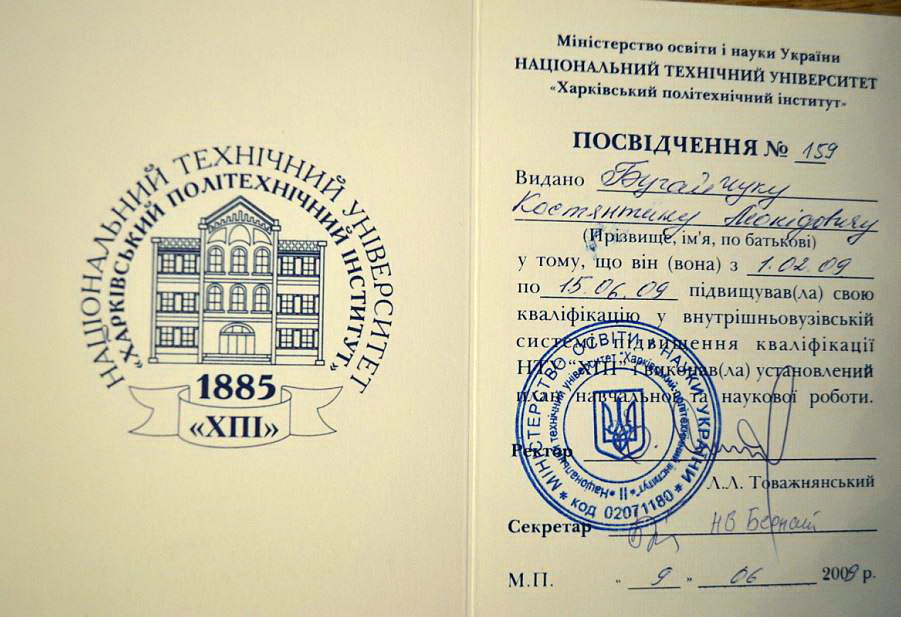 НАЦІОНАЛЬНИЙ ТЕХНІЧНИЙ УНІВЕРСИТЕТ
"ХАРКІВСЬКИЙ ПОЛІТЕХНІЧНИЙ ІНСТИТУТ"
1885
«ХПІ»
Міністерство освіти і науки України
НАЦІОНАЛЬНИЙ ТЕХНІЧНИЙ УНІВЕРСИТЕТ
«Харківський політехнічний інститут»
ПОСВІДЧЕННЯ № 159
Видано Бугайчуку
Костянтину Леонідовичу
(Прізвище, ім'я, по батькові)
у тому, що він (вона) з 1.02.09
по 15.06.09 підвищував(ла) свою
кваліфікацію у внутрішньовузівській
системі підвищення кваліфікації
НТУ "ХПІ" і виконав(ла) установлений
план навчальної та наукової роботи.
Ректор
Л.Л. Товажнянський
Секретар НВ
М.П. " 9 " 06 2009 р.
МІНІСТЕРСТВО ОСВІТИ І НАУКИ УКРАЇНИ
* код 02071180 *
Національний технічний університет "Харківський політехнічний інститут"
II